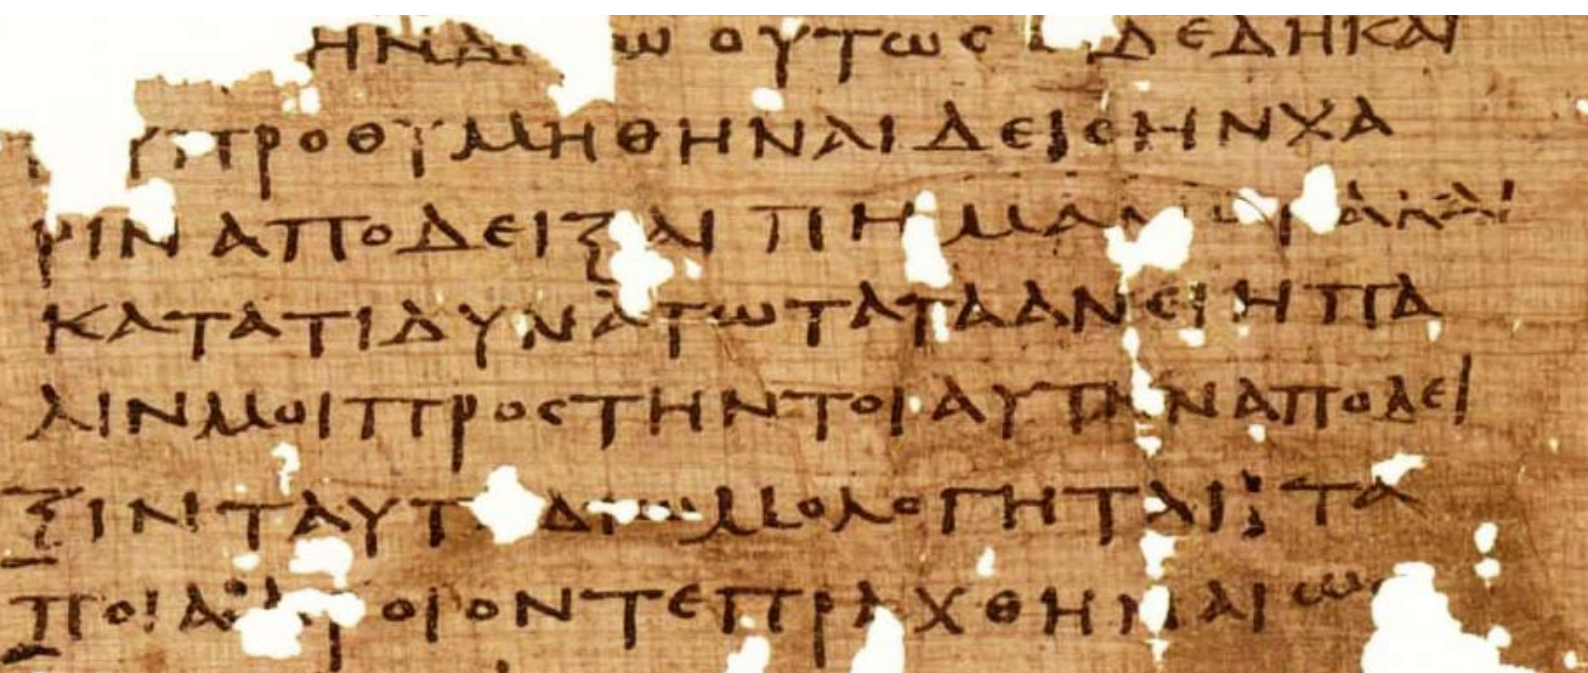 ΗΝΔ Ω ΟΥΤΩϹ ΔΕΔΗΚΑΙ
ΥΠΡΟΘΥΜΗΘΗΝΑΙΔΕΙϹΗΝΧΑ
ΡΙΝΑΠΟΔΕΙΞΑΙΠΗΜΑ ΚΑΙ
ΚΑΤΑΤΙΔΥΝΑΤΩΤΑΤΑΑΝΕΙΗΠΑ
ΛΙΝΜΟΙΠΡΟϹΤΗΝΤΟΙΑΥΤΗΝΑΠΟΔΕΙ
ΞΙΝΤΑΥΤ ΔΙΩΜΟΛΟΓΗΤΑΙ:ΤΑ
ΠΟΙΑ:ΑΡ ΟΙΟΝΤΕΠΡΑΧΘΗΝΑΙΩϹ